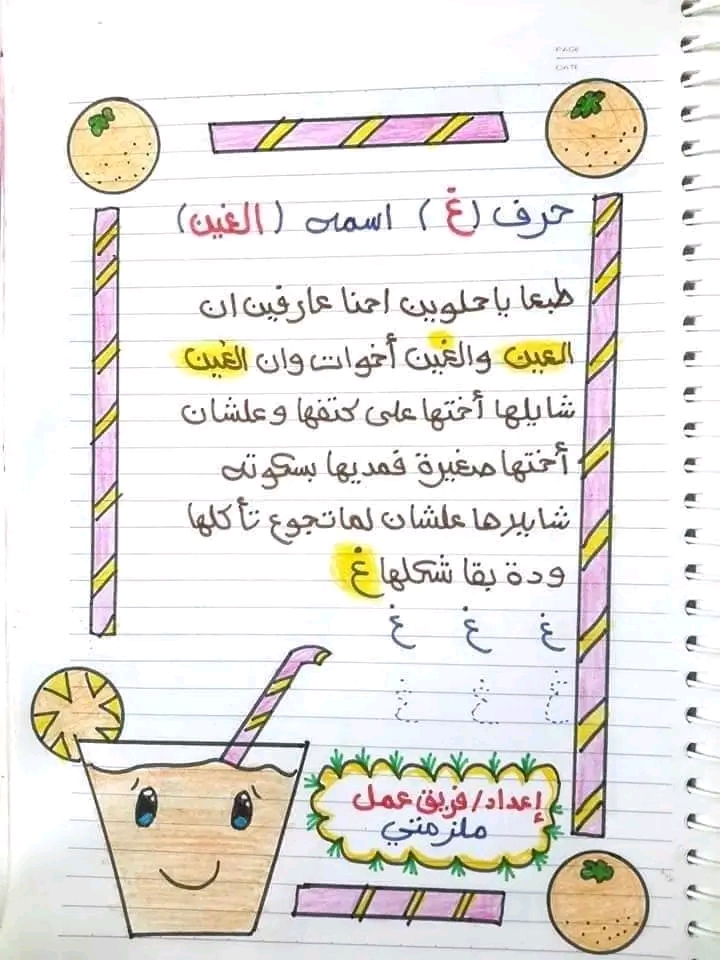 PAGE
DATE
حرف (غ) اسمه (الغين)
طبعا ياحلوين احنا عارفين ان
العين والغين أخوات وان الغين
شايلها أختها على كتفها وعلشان
أختها صغيرة فمديها بسكوته
شايلاها علشان لما تجوع تأكلها
ودة بقا شكلها غ
غ غ غ
غ غ غ
إعداد/فريق عمل
ملزمتي